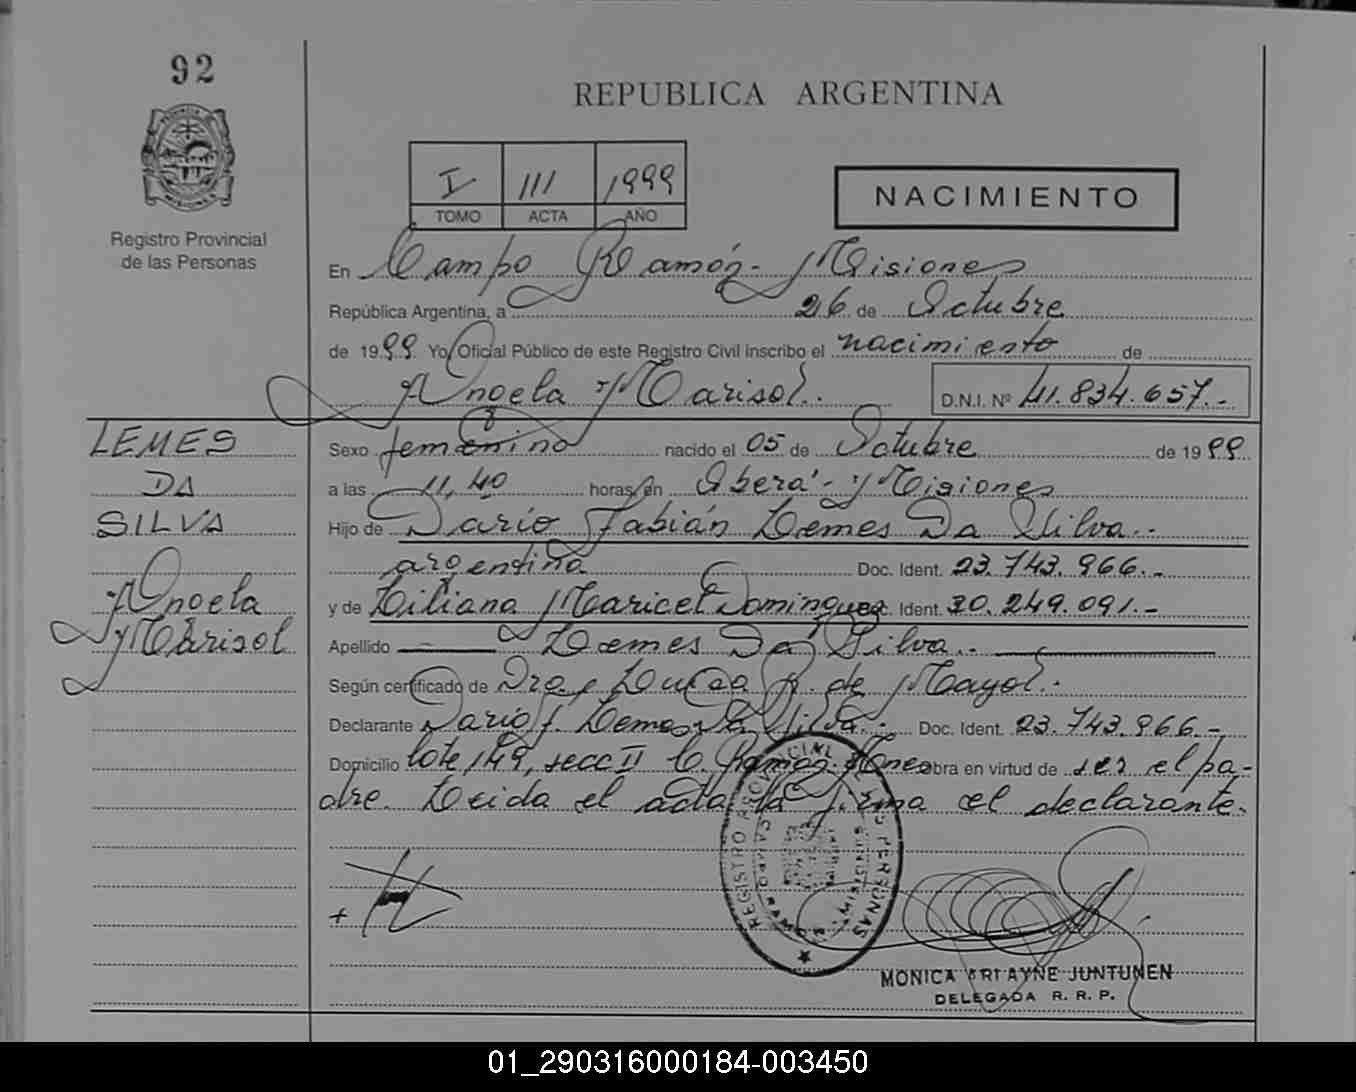 92
REPUBLICA ARGENTINA
I 111 1999
TOMO ACTA AÑO
NACIMIENTO
Registro Provincial
de las Personas
En Campo Ramón - Misiones
República Argentina, a 26 de Octubre
de 1999 Yo, Oficial Público de este Registro Civil inscribo el nacimiento de
Angela Marisol.
D.N.I. Nº 41.834.657.-
LEMES
DA
SILVA
Angela
Marisol
Sexo femenino nacido el 05 de Octubre de 1999
a las 11,40 horas, en Oberá - Misiones
Hijo de Darío Fabián Lemes Da Silva.-
argentina Doc. Ident. 23.743.966.-
y de Liliana Maricel Domínguez Doc. Ident. 30.249.091.-
Apellido Lemes Da Silva..
Según certificado de Dra. de Mayol.
Declarante Darío F. Lemes Da Silva.- Doc. Ident. 23.743.966.-
Domicilio lote 149, secc II C. Ramón Mnes obra en virtud de ser el pa-
dre. Leida el acta la firma el declarante.
REGISTRO PROVINCIAL DE LAS PERSONAS
MISIONES
CAMPO RAMON
MONICA ARLAYNE JUNTUNEN
DELEGADA R. R. P.
01_290316000184-003450